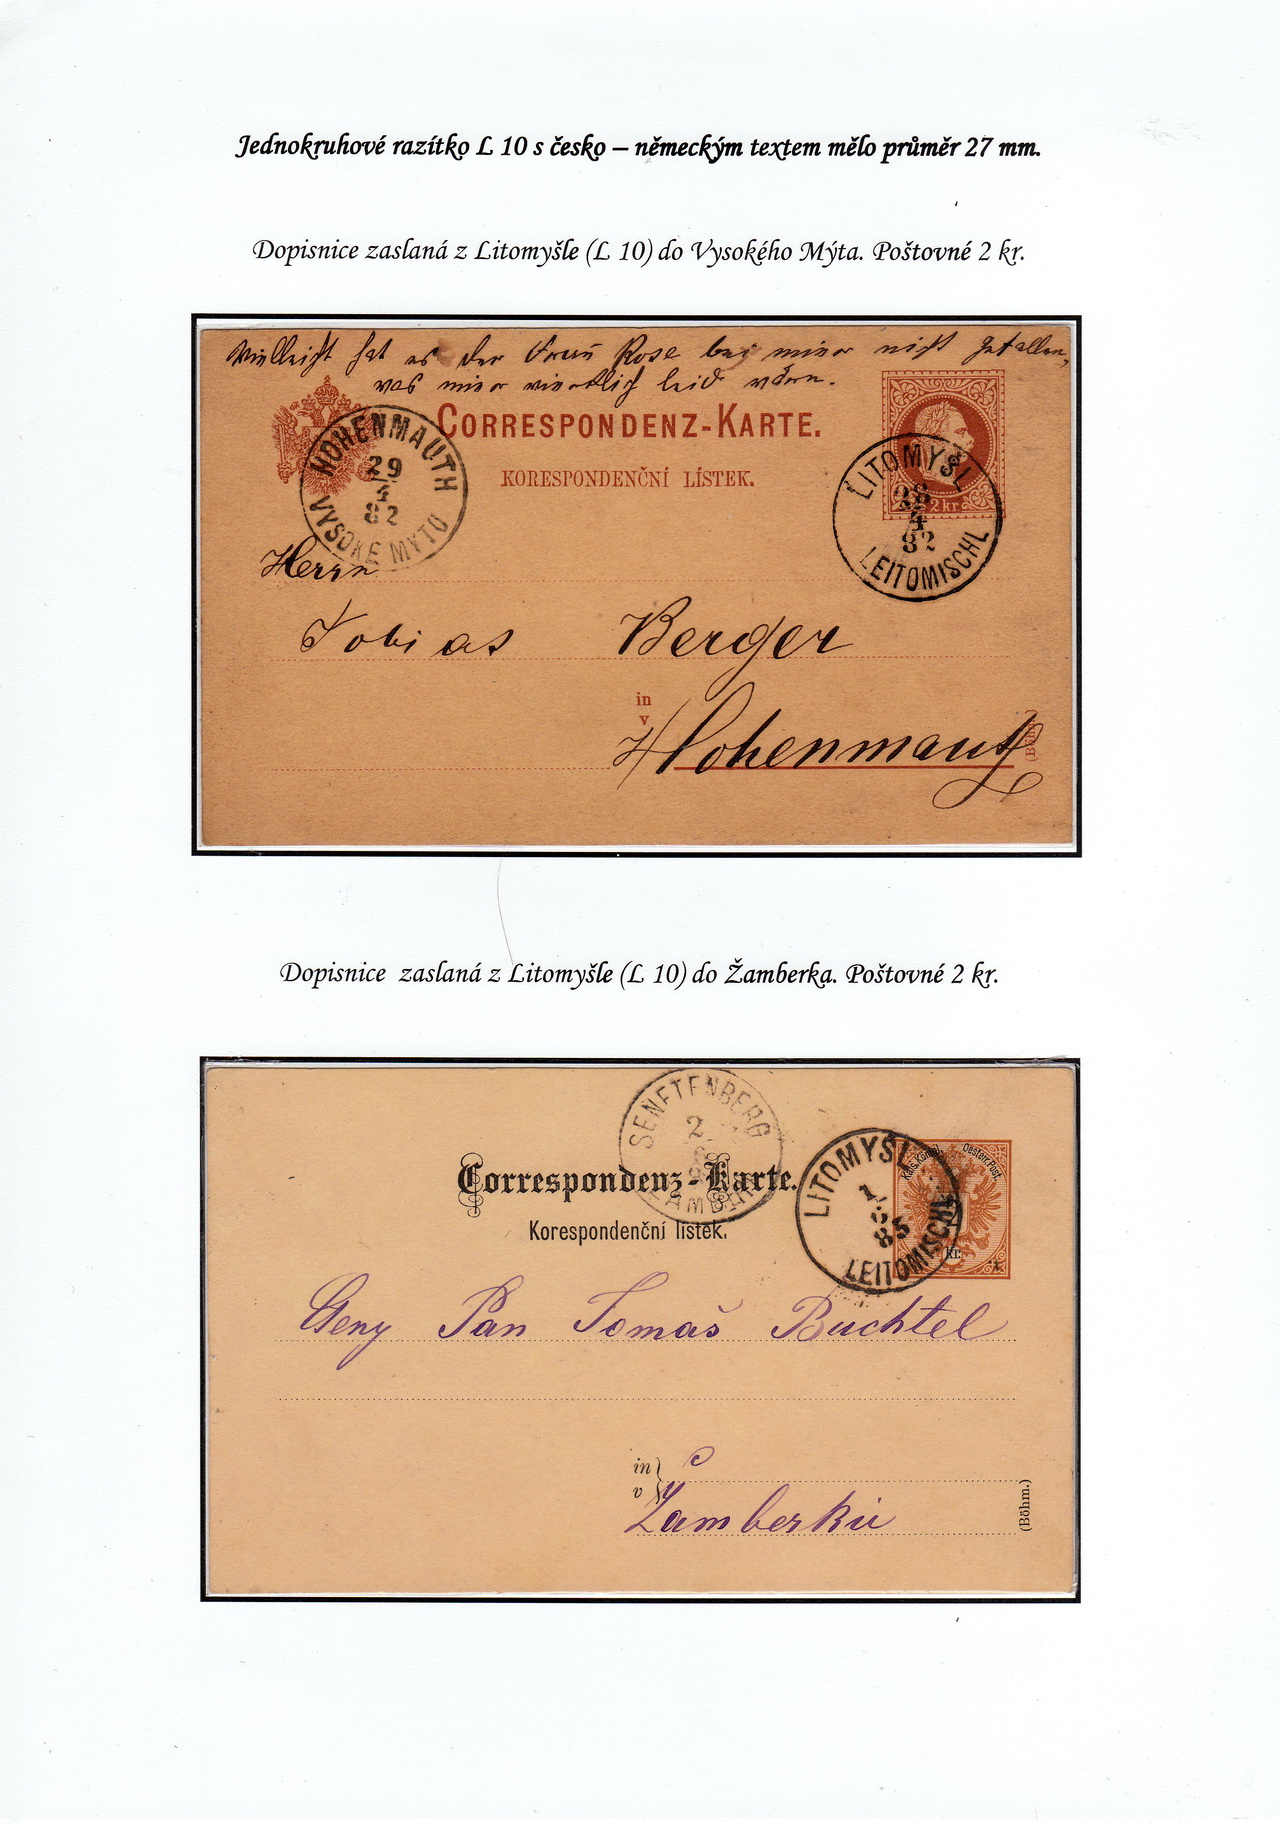 Jednokruhové razítko L 10 s česko – německým textem mělo průměr 27 mm.
Dopisnice zaslaná z Litomyšle (L 10) do Vysokého Mýta. Poštovné 2 kr.
Vielleicht hat es der Frau Rose bei mir nicht gefallen,
was mir wirklich leid wäre.
CORRESPONDENZ-KARTE.
KORESPONDENČNÍ LÍSTEK.
2 kr.
HOHENMAUTH
29
4
82
VYSOKÉ MÝTO
LITOMYŠL
28
4
82
LEITOMISCHL
Herrn
Tobias Berger
in
v
Hohenmauth
(Böhm.)
Dopisnice zaslaná z Litomyšle (L 10) do Žamberka. Poštovné 2 kr.
SENFTENBERG
2
ŽAMBERK
Correspondenz-Karte.
Korespondenční lístek.
LITOMYŠL
1
6
85
LEITOMISCHL
Kais. Königl.
Oesterr. Post.
kr.
Ceny Pan Tomaš Buchtel
in
v
c
Žamberku
(Böhm.)